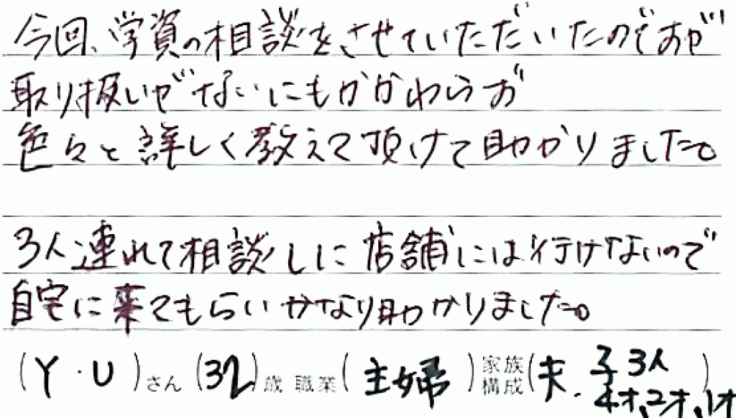 今回、学資の相談をさせていただいたのですが
取り扱いがないにもかかわらず
色々と詳しく教えて頂けて助かりました。
3人連れて相談しに店舗には行けないので
自宅に来てもらいかなり助かりました。
(Y・U)さん(32)歳 職業(主婦)家族構成(夫、子3人 4才、2才、1才)